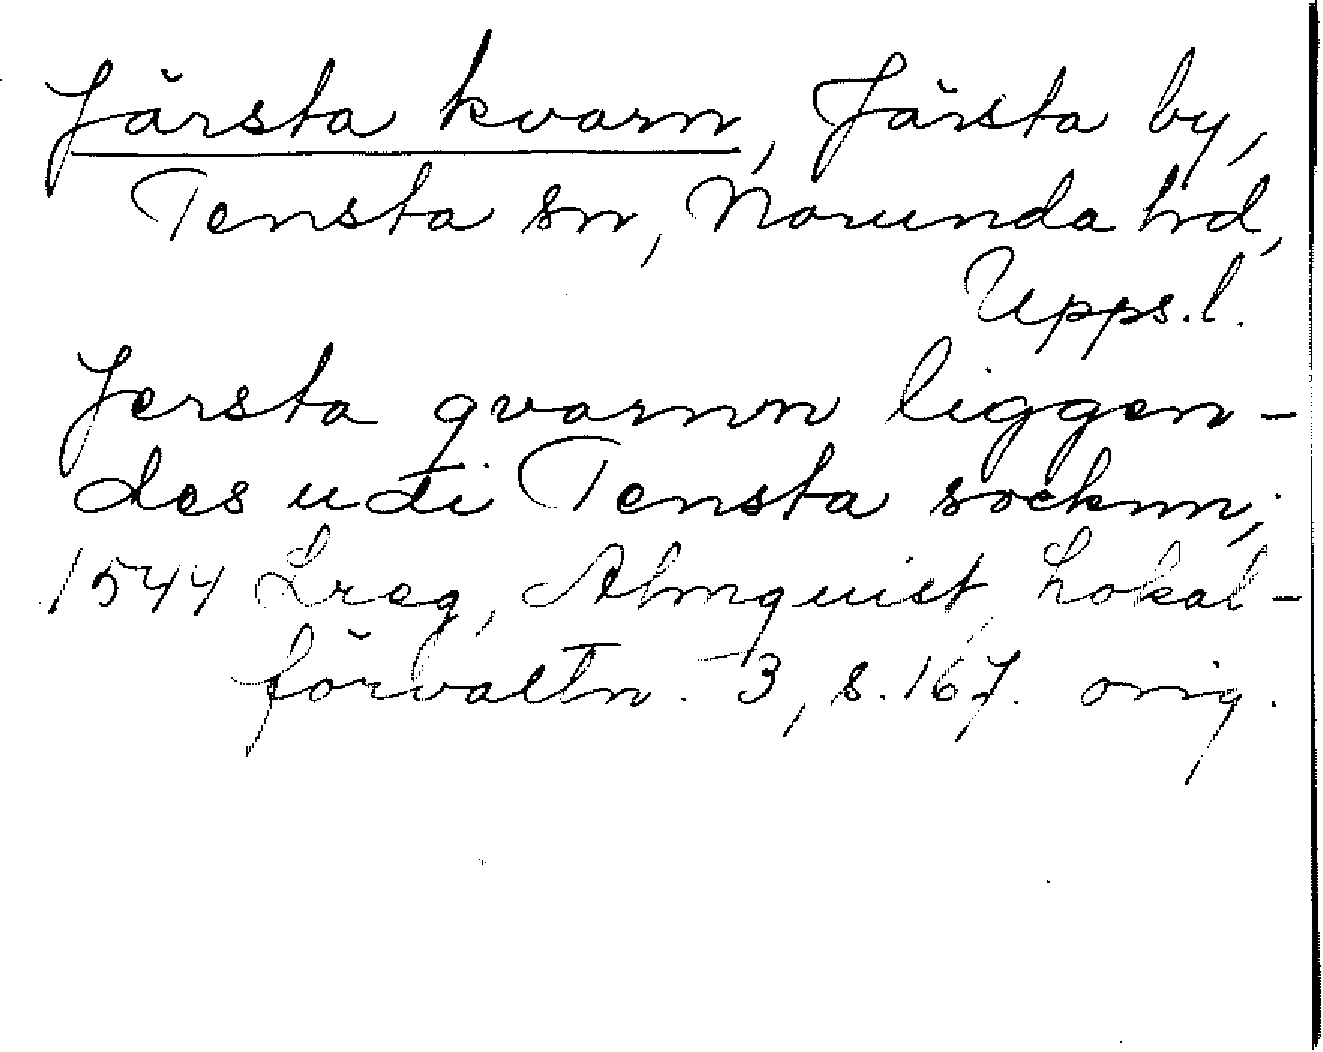 Järsta kvarn, Järsta by,
Tensta sn, Norunda hd,
Upps.l.
Jersta qvarnn liggen-
des udi Tensta socknn,
1544 Lreg, Almquist, Lokal-
förvaltn. 3, s. 167. orig.